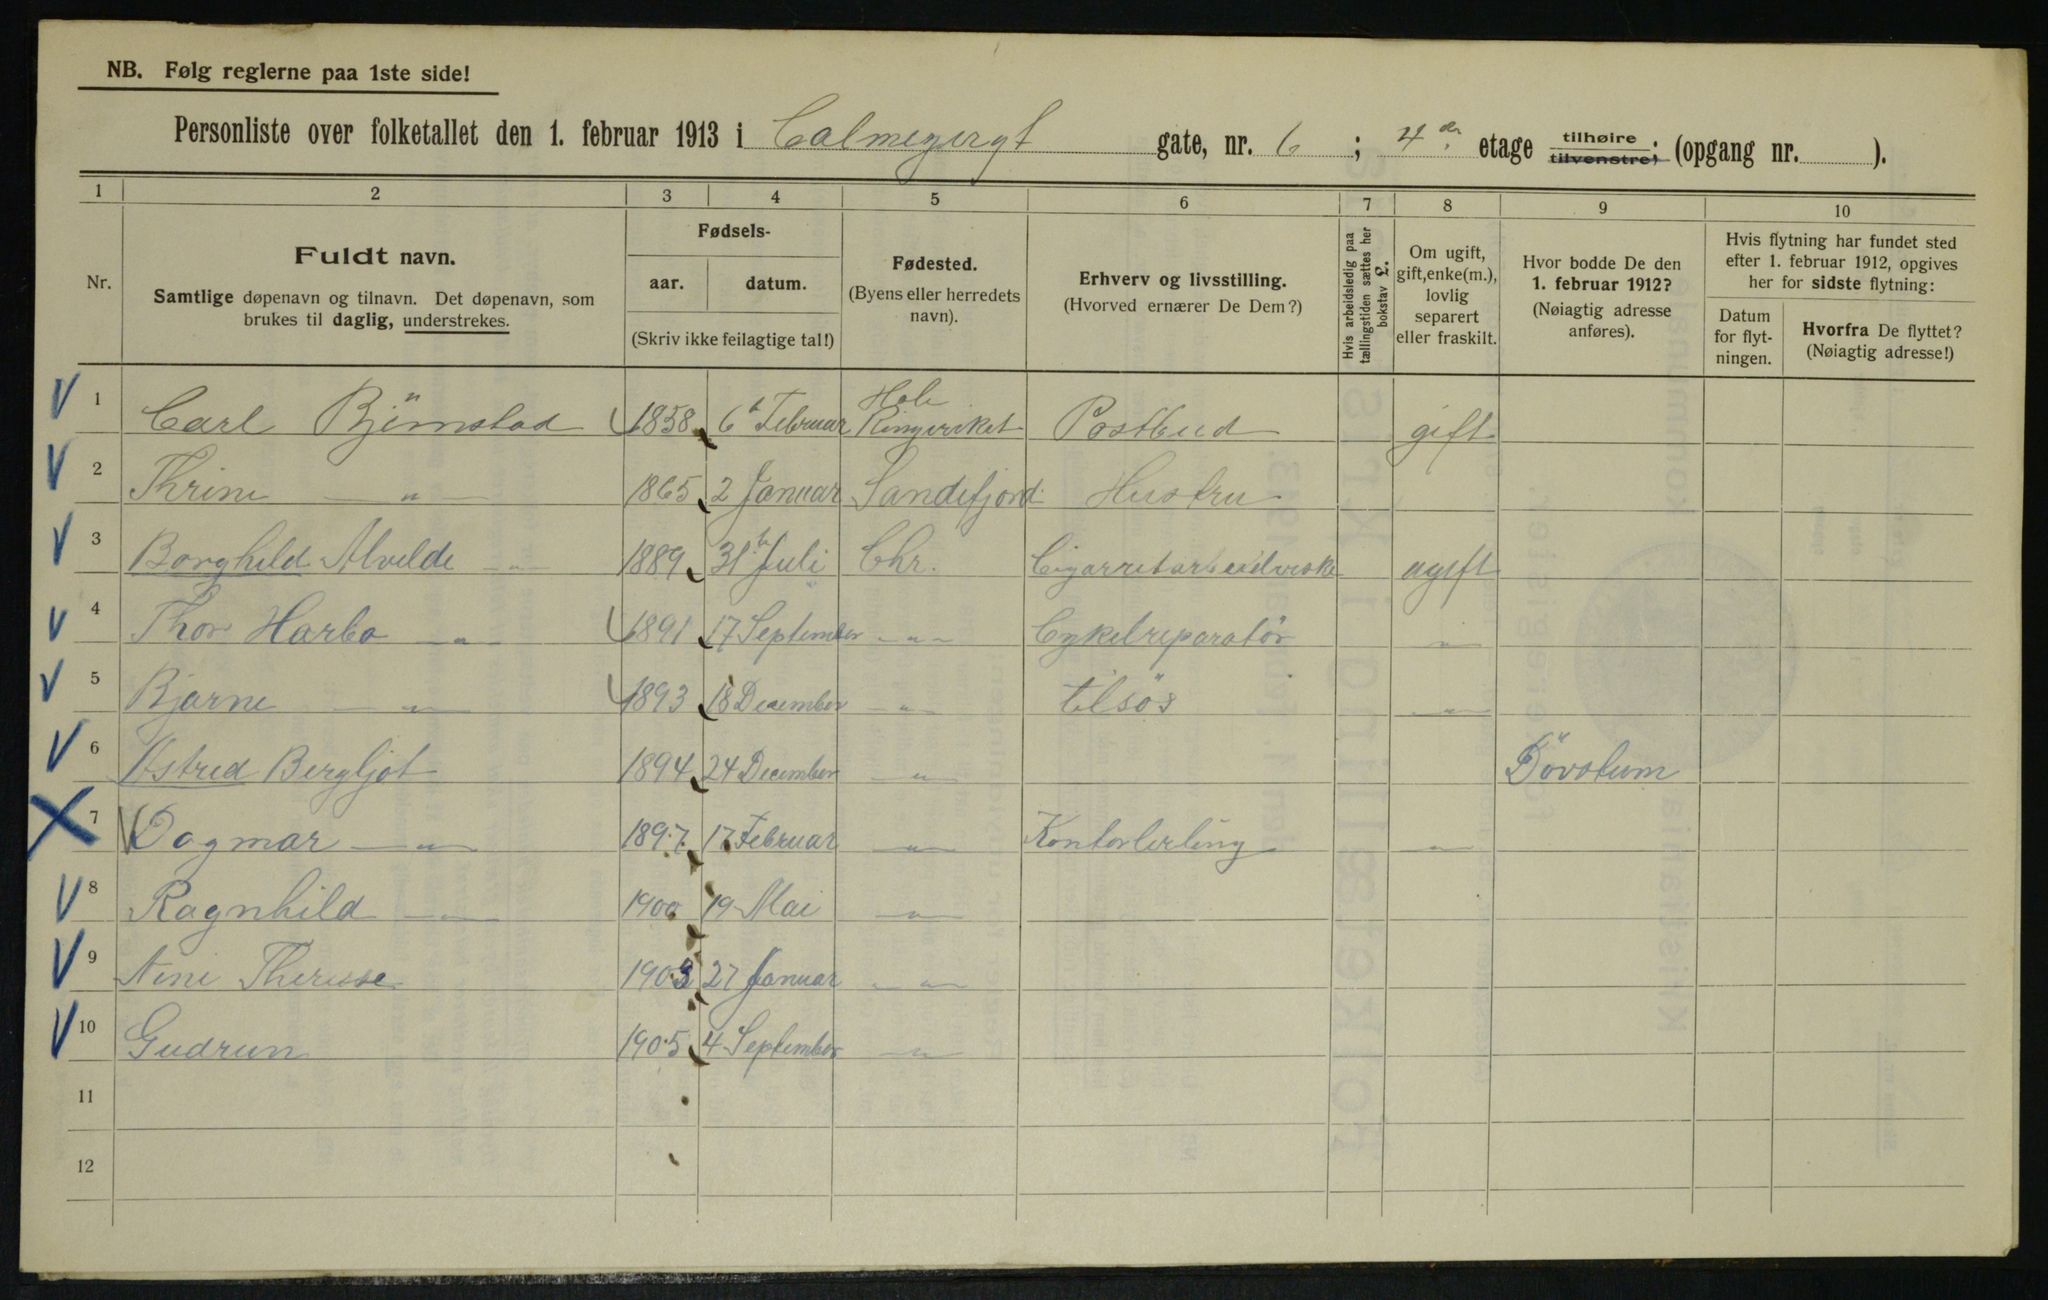 NB. Følg reglerne paa 1ste side!
Personliste over folketallet den 1. februar 1913 i Calmeyergt gate, nr. 6 ; 4de etage tilhøire. tilvenstre; (opgang nr. ).
1 2 3 4 5 6 7 8 9 10
Nr.
Fuldt navn.
Samtlige døpenavn og tilnavn. Det døpenavn, som
brukes til daglig, understrekes.
Fødsels-
aar. datum.
(Skriv ikke feilagtige tal!)
Fødested.
(Byens eller herredets
navn).
Erhverv og livsstilling.
(Hvorved ernærer De Dem?)
Hvis arbeidsledig paa
tællingstiden sættes her
bokstav £.
Om ugift,
gift, enke(m.),
lovlig
separert
eller fraskilt.
Hvor bodde De den
1. februar 1912?
(Nøiagtig adresse
anføres).
Hvis flytning har fundet sted
efter 1. februar 1912, opgives
her for sidste flytning:
Datum
for flyt-
ningen.
Hvorfra De flyttet?
(Nøiagtig adresse!)
1 Carl Bjørnstad 1858 6te Februar Hole Ringeriket Postbud gift
2 Thrine — " — 1865 2 Januar Sandefjord Hustru
3 Borghild Alvilde — " — 1889 31te Juli Chr. ugift
4 Thor Harbo — " — 1891 17 September — " — Cykelreparatör "
5 Bjarne — " — 1893 18 December — " — tilsös — " —
6 Astrid Bergljot 1894 24 December — " — Dövstum
7 Dagmar — " — 1897 17 Februar — " — Kontorlerling — " —
8 Ragnhild — " — 1900 19 Mai — " —
9 Therese 1903 27 Januar — " —
10 Gudrun 1905 4 September — " —
11
12